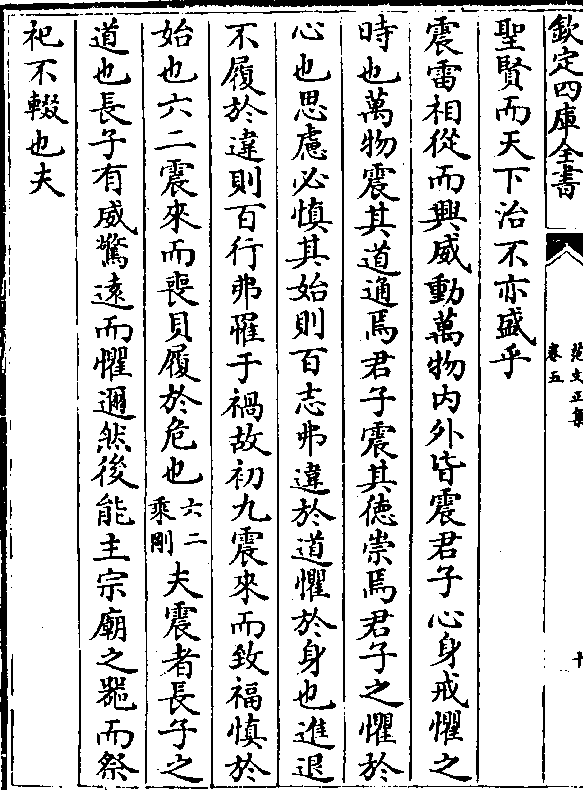 欽定四庫全書
范文正集
卷五
十
聖賢而天下治不亦盛乎
震雷相從而興威動萬物内外皆震君子心身戒懼之
時也萬物震其道通焉君子震其徳崇焉君子之懼於
心也思慮必慎其始則百志弗違於道懼於身也進退
不履於違則百行弗罹于禍故初九震來而致福慎於
始也六二震來而喪貝履於危也六二乘剛夫震者長子之
道也長子有威驚遠而懼邇然後能主宗廟之器而祭
祀不輟也夫